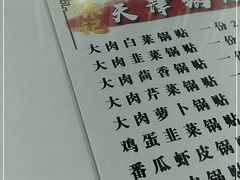 天津锅
大肉白菜锅贴 一份
大肉韭菜锅贴 一份
大肉茴香锅贴 一
大肉芹菜锅贴
大肉萝卜锅贴
鸡蛋韭菜锅贴
番瓜虾皮锅